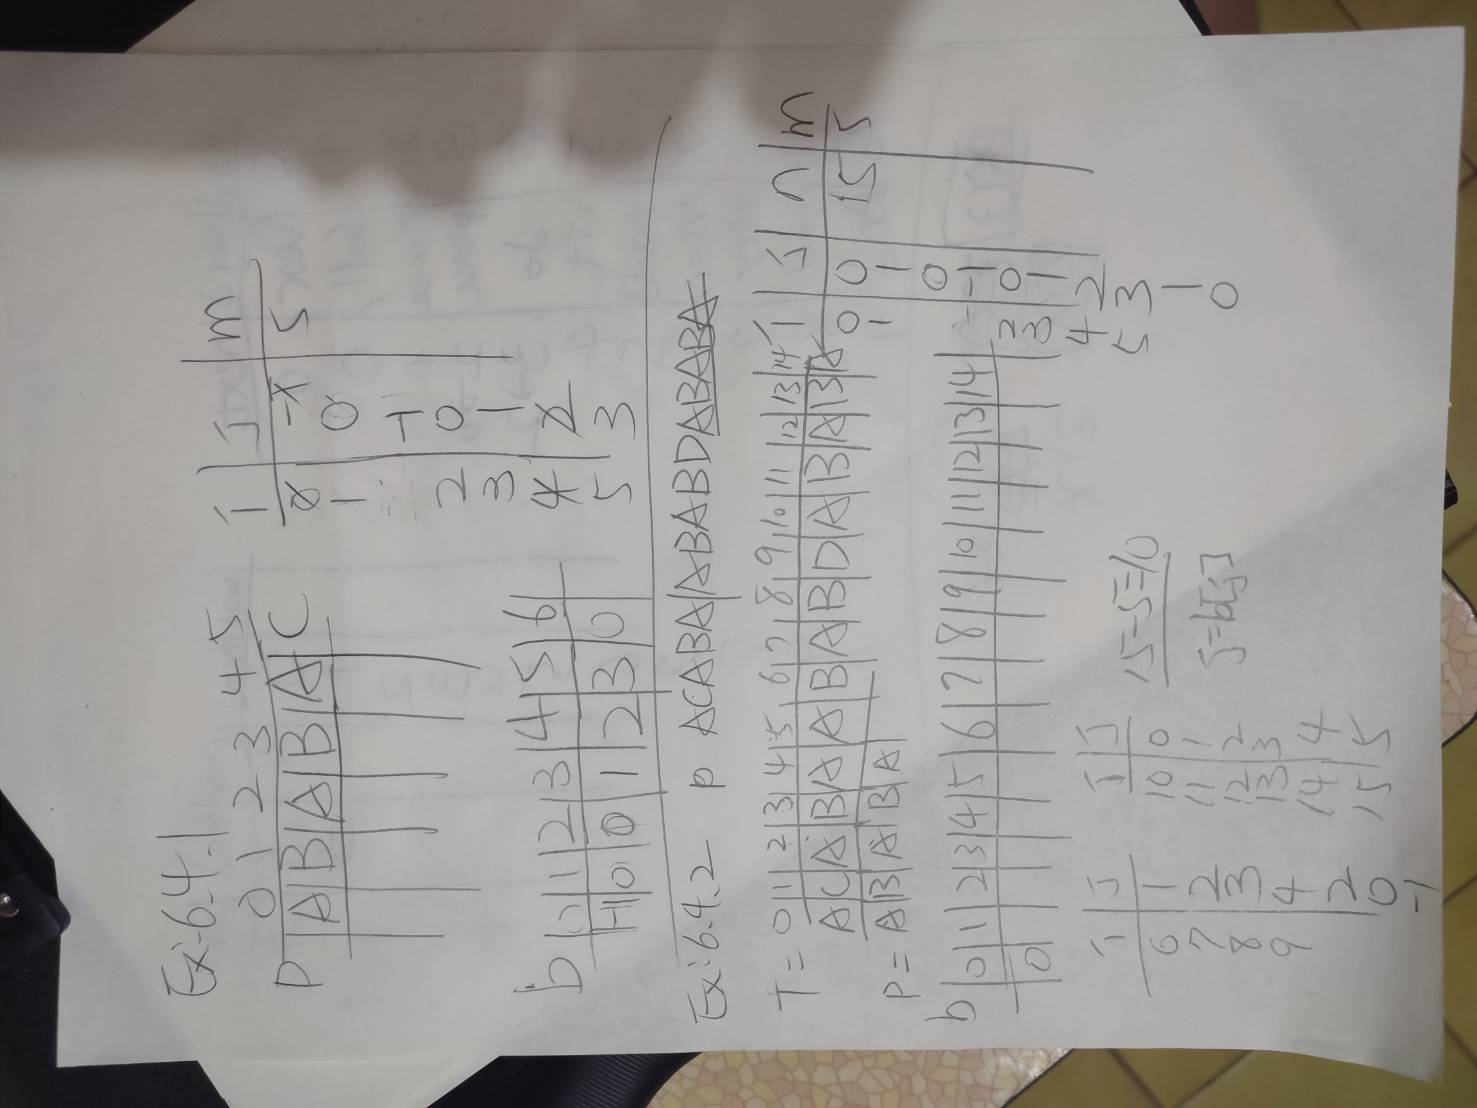 Ex:6.4.1
0 1 2 3 4 5
P A B A B A C
i j m
0 -1 5
1 0
-1
2 0
3 1
4 2
5 3
b 0 1 2 3 4 5 6
-1 0 0 1 2 3 0
Ex:6.4.2 p ACABA|ABABDABABA
T= 0 1 2 3 4 5 6 7 8 9 10 11 12 13 14
A C A B A A B A B D A B A B A
P= A B A B A
i j n m
0 0 15 5
1 1
0
-1
2 0
3 1
4 2
5 3
1
0
b 0 1 2 3 4 5 6 7 8 9 10 11 12 13 14
0
i j
6 1
7 2
8 3
9 4
2
0
-1
i j
10 0
11 1
12 2
13 3
14 4
15 5
15-5=10
j=b[j]